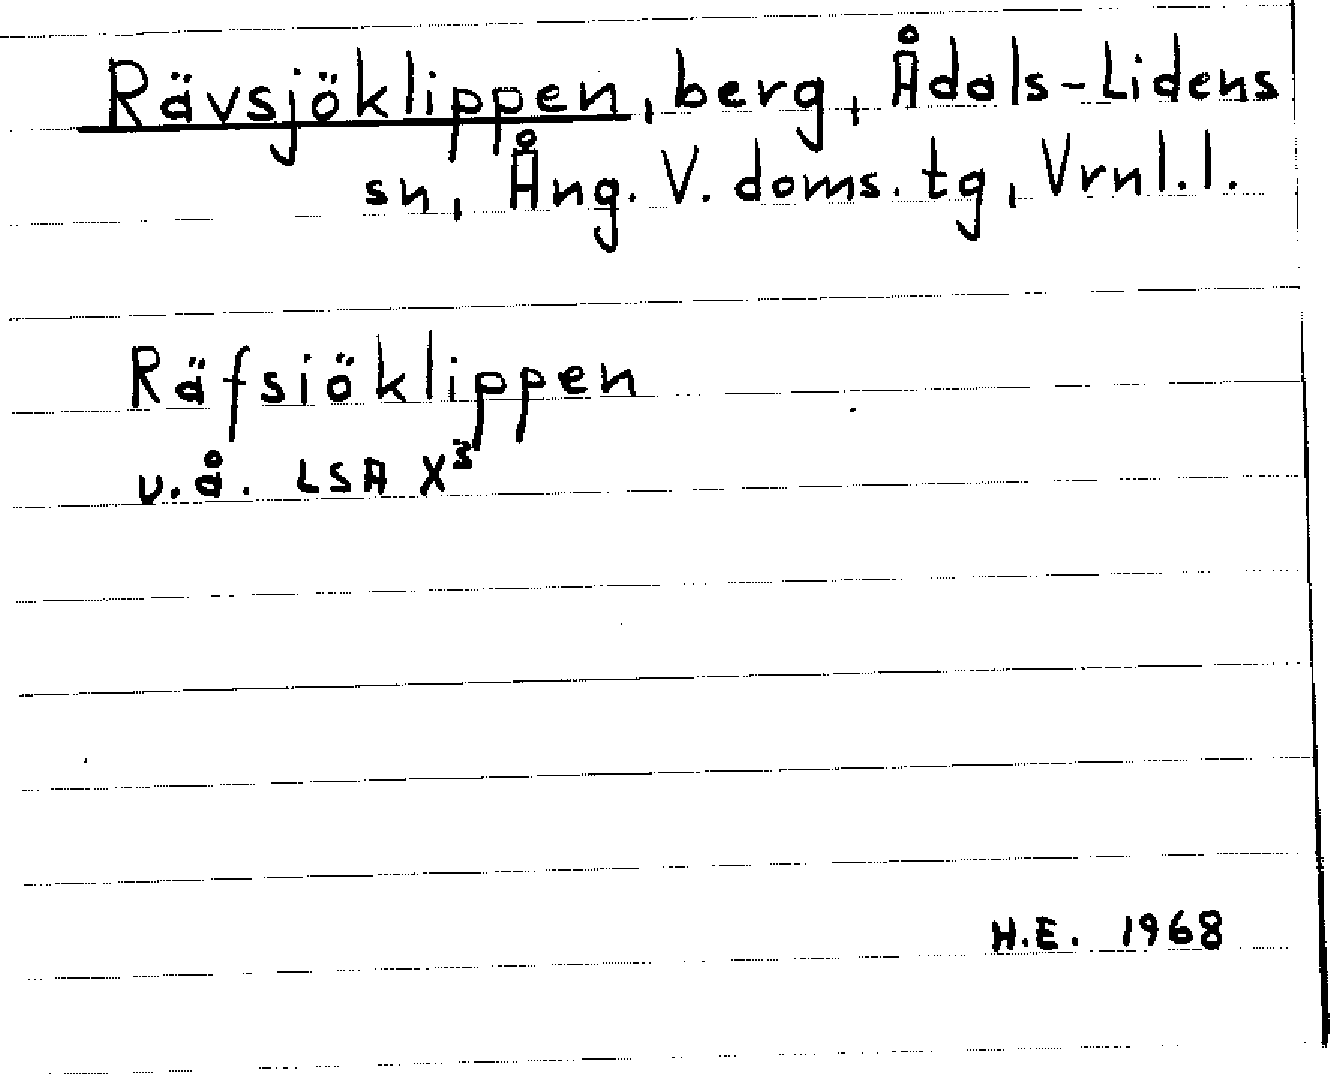 Rävsjöklippen, berg, Ådals-Lidens
sn, Ång. V. doms. tg, Vrnl.l.
Räfsiöklippen
u.å. LSA X³
H.E. 1968